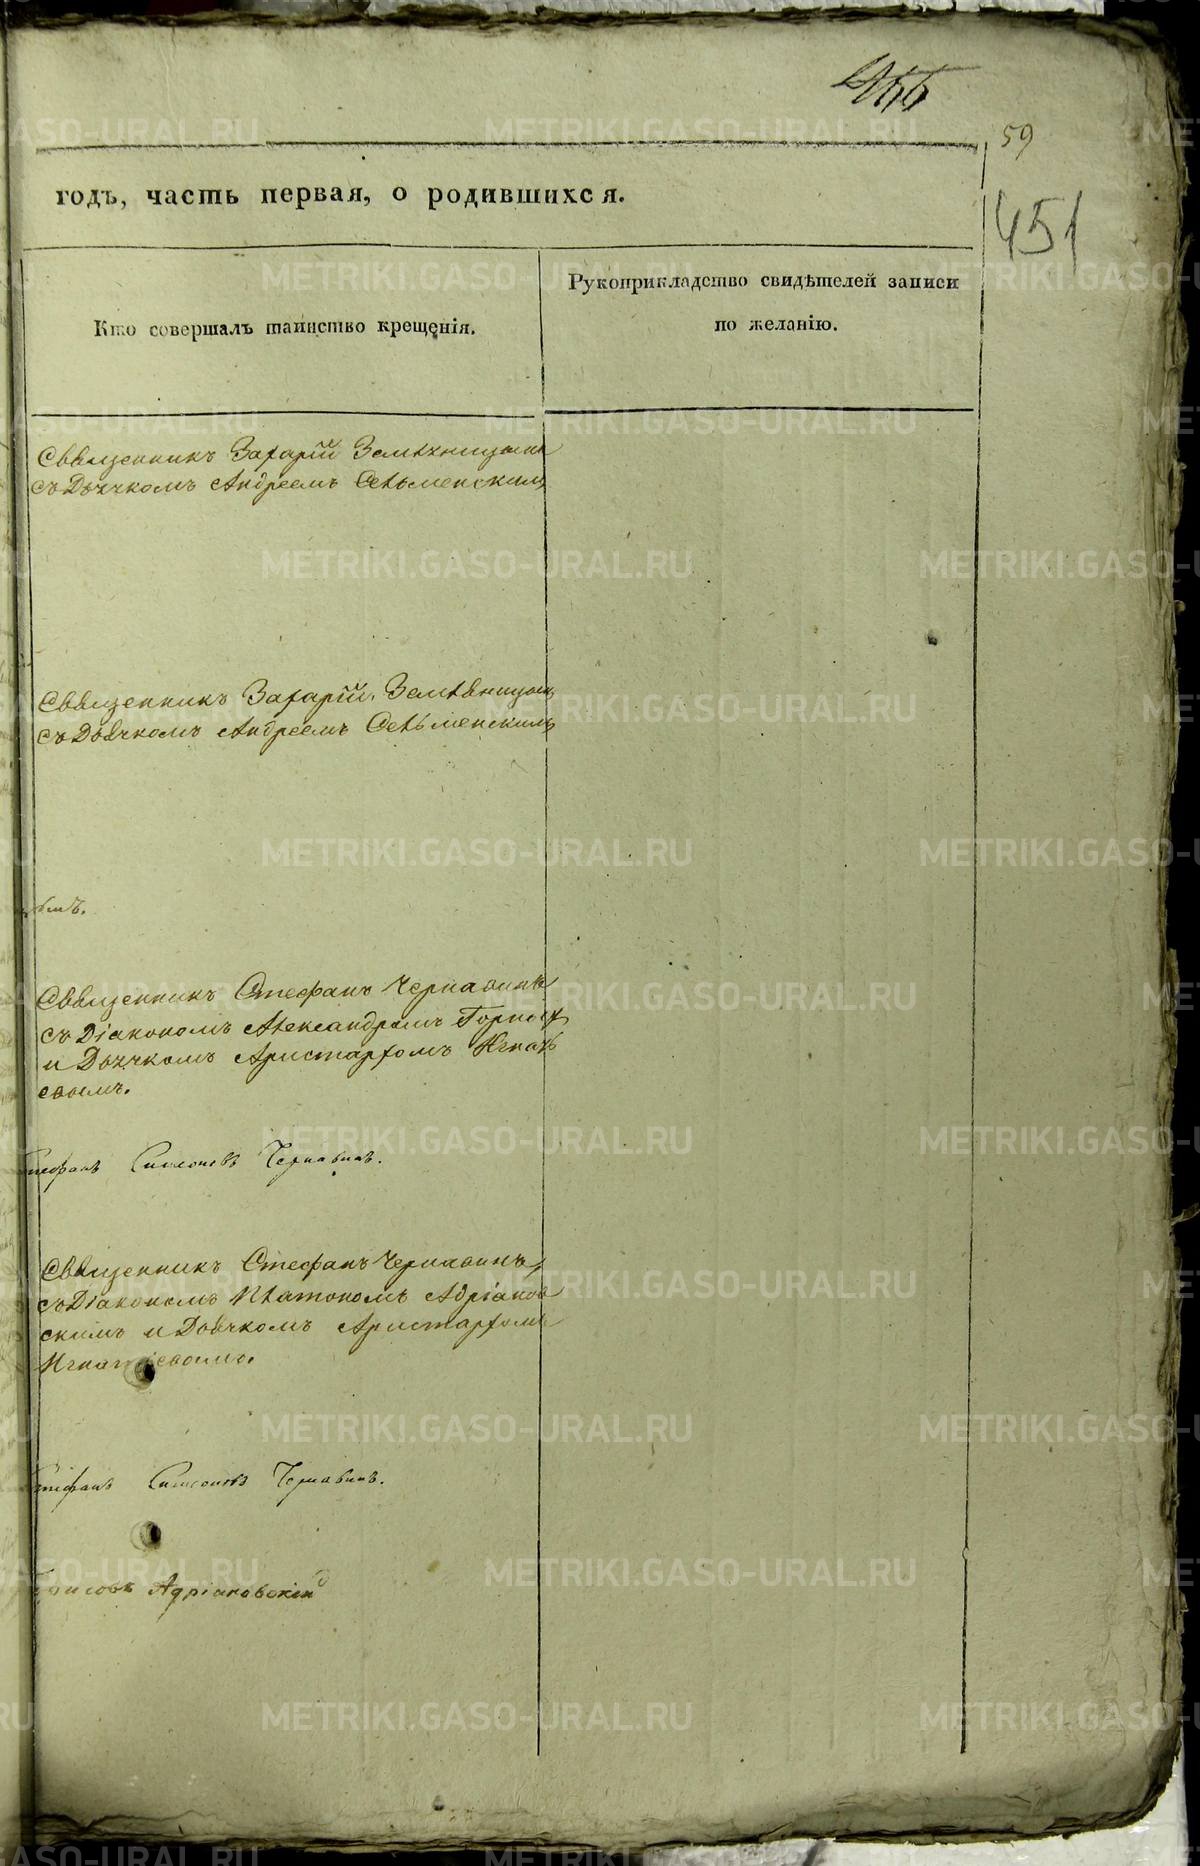 59
годъ, часть первая, о родившихся.
451
Кто совершалъ таинство крещенія.
Рукоприкладство свидѣтелей записи
по желанію.
Священникъ Захарій
съ Дьячкомъ Андреемъ Сельменскимъ
Священникъ Захарій
съ Дьячкомъ Андреемъ Сельменскимъ
Священникъ Стефанъ Чернавинъ
съ Діакономъ Александромъ
и Дьячкомъ Аристархомъ Игнать
евымъ.
Симеоновъ Чернавинъ.
Священникъ Стефанъ Чернавинъ,
съ Діакономъ Платономъ Адріанов
скимъ и Дьячкомъ Аристархомъ
Игнатьевымъ.
Симеоновъ Чернавинъ.
Адріановскій
METRIKI.GASO-URAL.RU